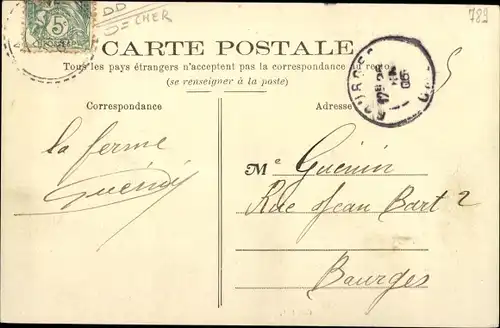 DD
D=CHER
789
5c
CARTE POSTALE
Tous les pays étrangers n'acceptent pas la correspondance au recto
(se renseigner à la poste)
BOURGES
Correspondance
Adresse
la ferme
Mᵉ Guenin
Rue Jean Bart 2
Bourges